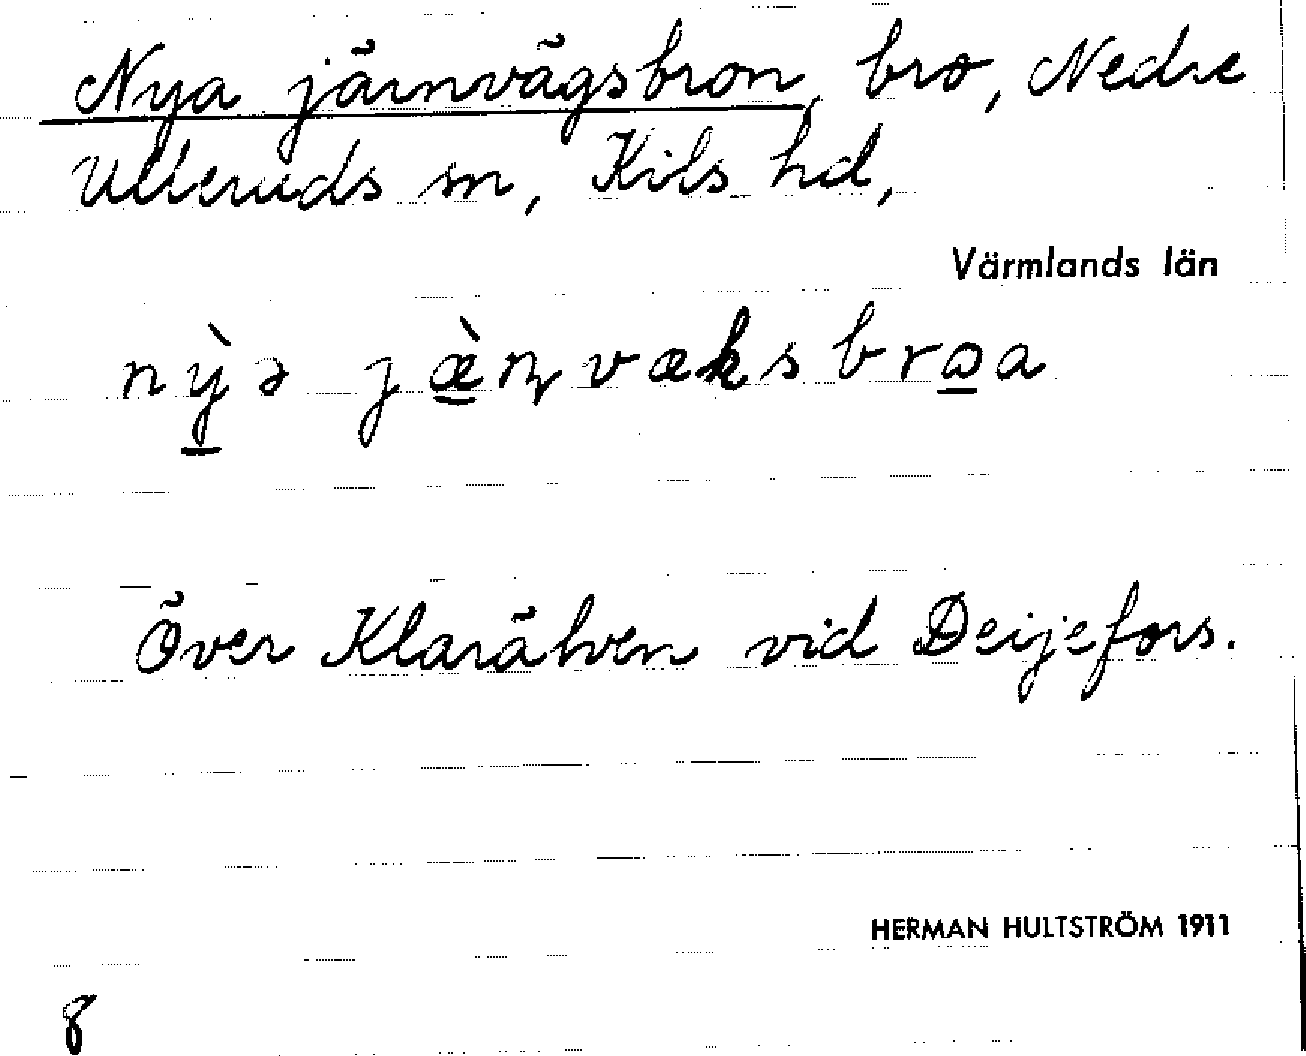 Nya järnvägsbron, bro, Nedre
Ulleruds sn, Kils hd,
Värmlands län
nỳ̠ə jæ̠̀ɳvæksbrω̠a
Över Klarälven vid Deijefors.
HERMAN HULTSTRÖM 1911
8